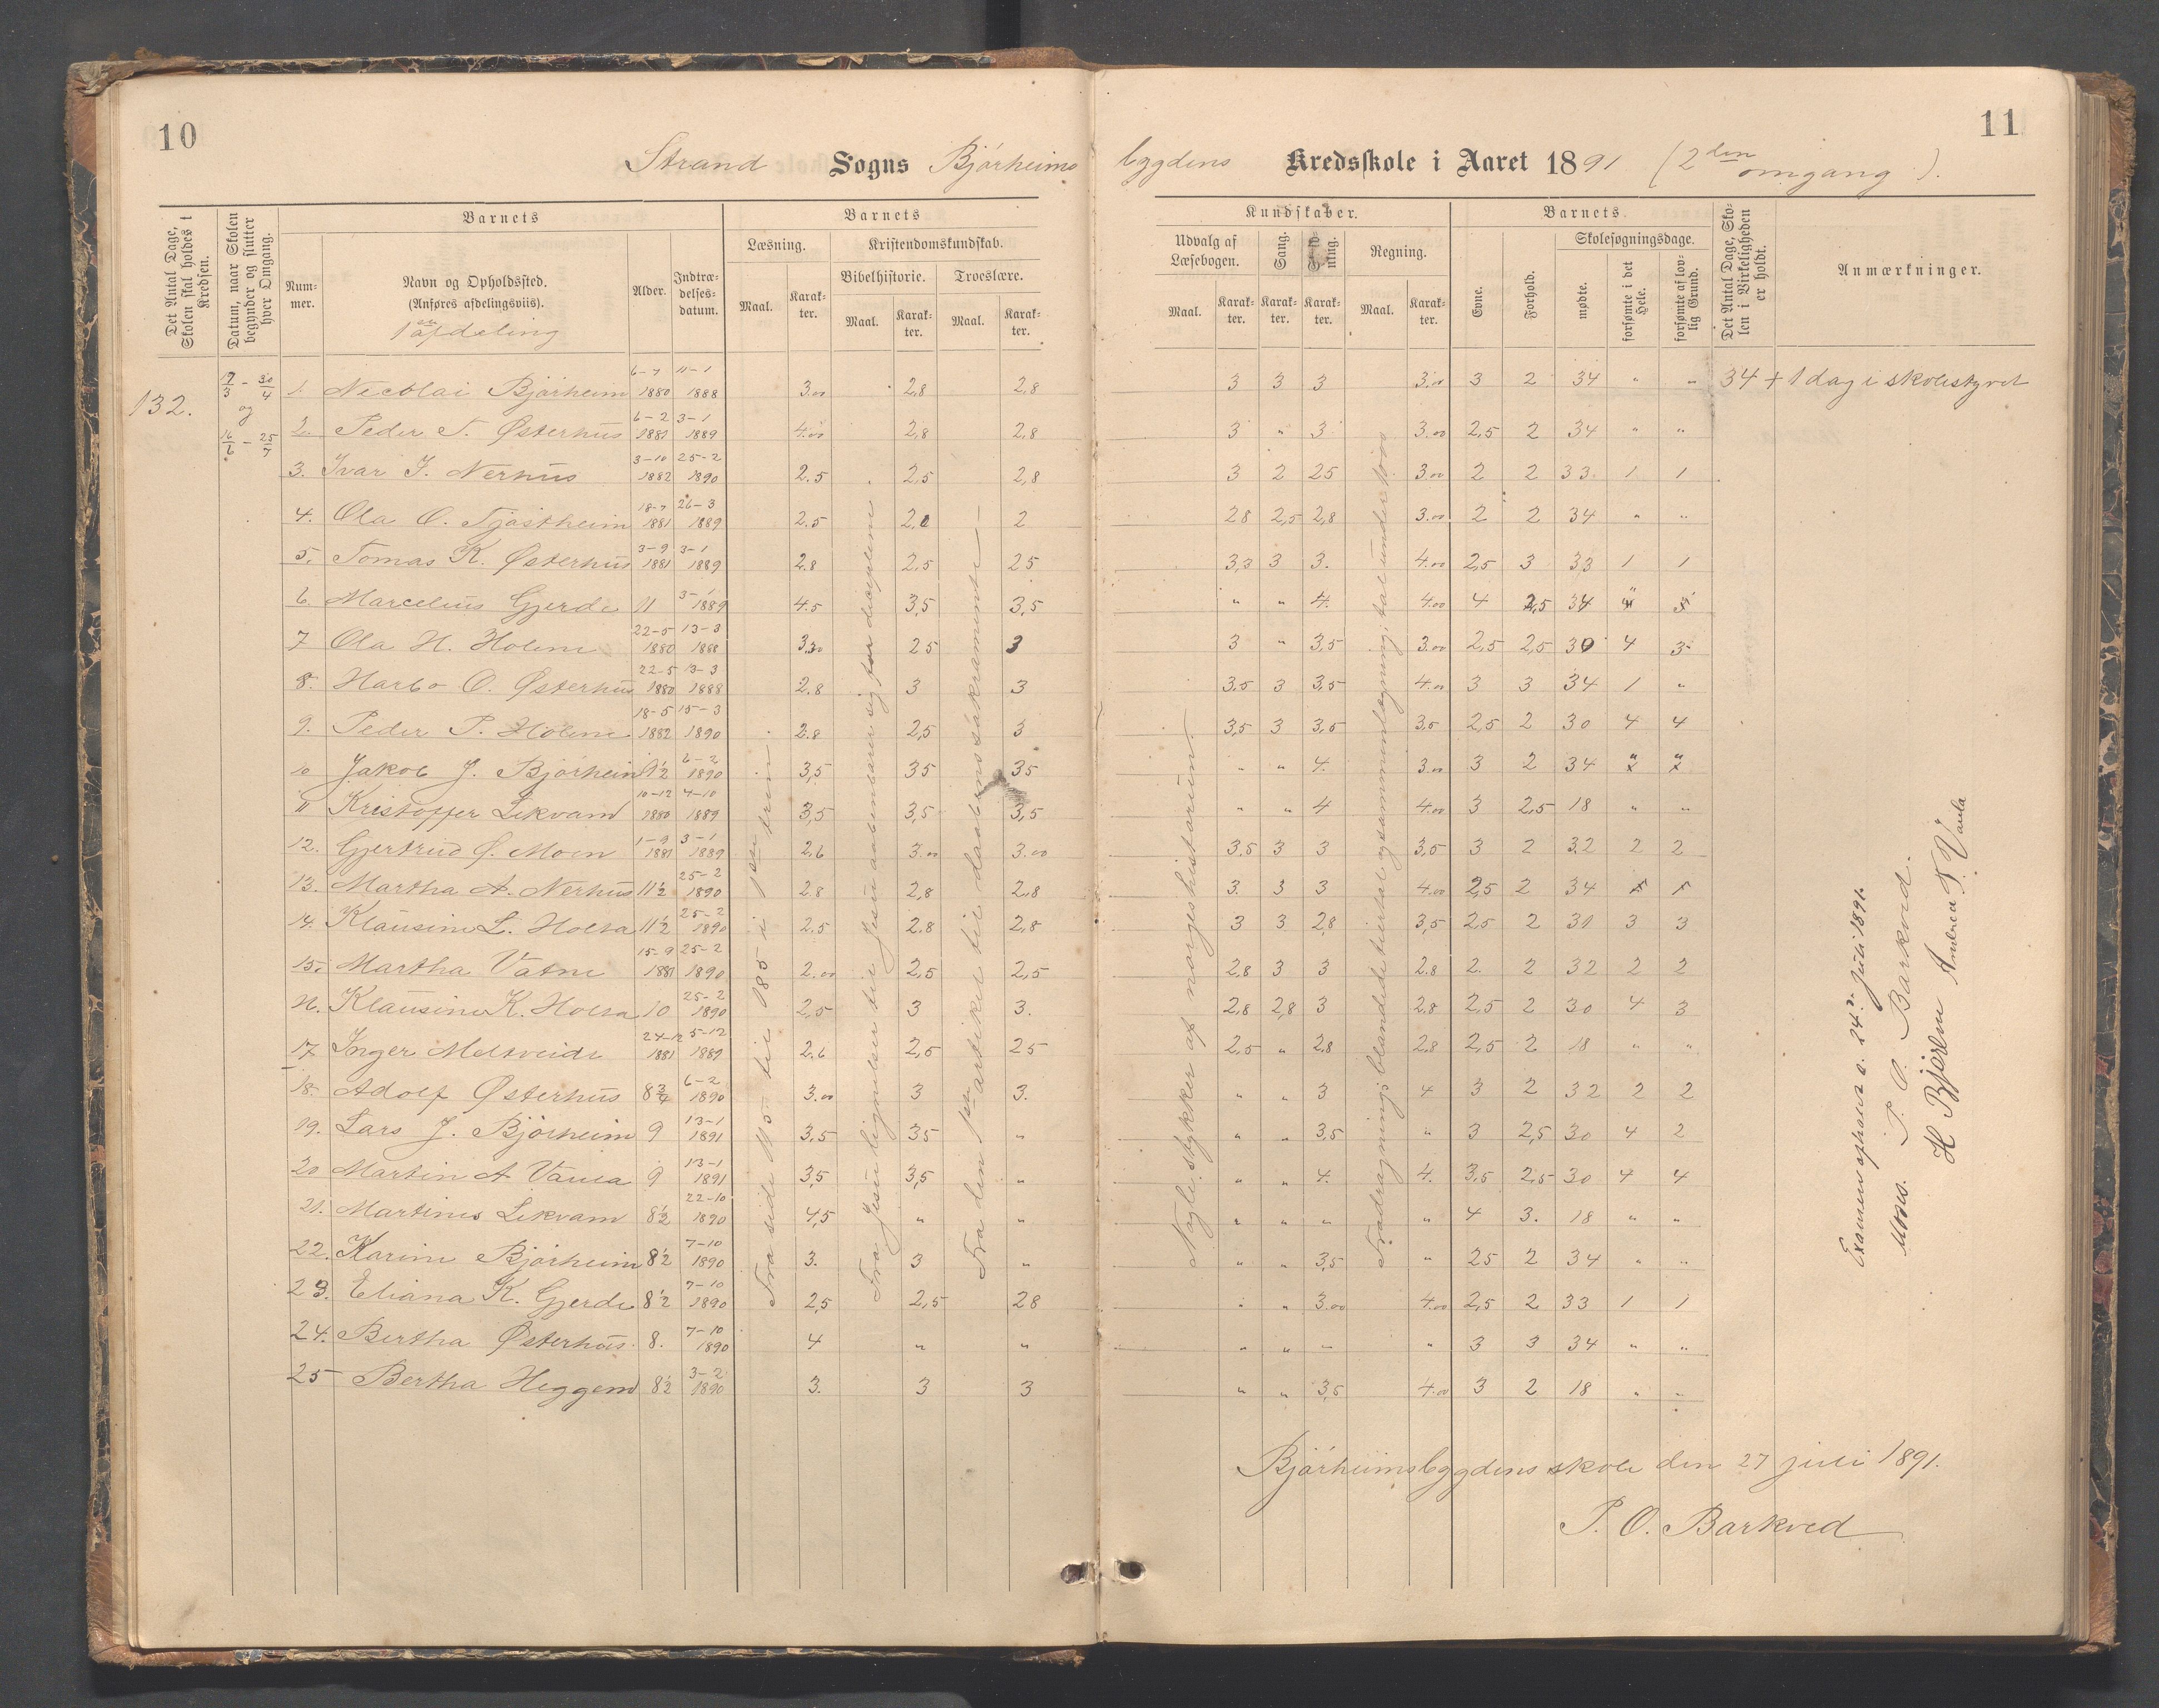 10
11
Strand Sogns Bjørheims bygdens Kredsskole i Aaret 1891 (2den omgang).
Det Antal Dage, Skolen skal holdes i Kredsen.
Datum, naar Skolen begynder og slutter hver Omgang.
Barnets
Nummer.
Navn og Opholdssted.
(Anføres afdelingsviis).
1ste afdeling
Alder.
Indtrædelsesdatum.
Barnets
Læsning.
Kristendomskundskab.
Bibelhistorie.
Troeslære.
Maal. Karakter. Maal. Karakter. Maal. Karakter.
Kundskaber.
Udvalg af Læsebogen.
Sang.
Regning.
Maal. Karakter. Karakter. Karakter. Maal. Karakter.
Barnets.
Evne.
Forhold.
Skolesøgningsdage.
mødte.
forsømte i det Hele.
forsømte af lovlig Grund.
Det Antal Dage, Skolen i Virkeligheden er holdt.
Anmærkninger.
132.
17/3 - 30/4 og 16/6 - 25/7
1. Necolai Bjørheim 6-7 1880 11-1 1888 3.00 2,8 2,8 3 3 3 3.00 3 2 34 " " 34 + 1 dag i skolestyret
2. Peder T. Østerhus 6-2 1881 3-1 1889 4.00 2,8 2.8 3 " 3 3.00 2,5 2 34 " "
3. Ivar J. Nerhus 3-10 1882 25-2 1890 2.5 2,5 2,8 3 2 25 3.00 2 2 33 1 1
4. Ola O. Tjøstheim 18-7 1881 26-3 1889 2.5 2,0 2 28 2,5 2,8 3.00 2 2 34 " "
5. Tomas K. Østerhus 3-9 1881 3-1 1889 2.8 2.5 25 3,3 3 3. 4.00 2,5 3 33 1 1
6. Marcelius Gjerde 11 3-1 1889 4.5 3,5 3,5 " " 4. 4.00 4 2,5 34 "
7 Ola H. Holene 22-5 1880 13-3 1888 3.30 25 3 3 " 3,5 3.00 2,5 2,5 30 4 3
8. Harbo O. Østerhus 22-5 1880 13-3 1888 2.8 3 3 3.5 3 3,5 4.00 3 3 34 1 "
9. Peder P. Holene 18-5 1882 15-3 1890 2.8 2,5 3 3,5 3 3,5 3,5 2,5 2 30 4 4
10 Jakob J. Bjørheim 9½ 6-2 1890 3,5 35 35 " " 4. 3.00 3 2 34 " "
11 Kristoffer Lekvam 10-12 1880 4-10 1889 3,5 3,5 3,5 " " 4 4.00 3 2,5 18 " "
12. Gjertrud Ø. Moen 1-9 1881 3-1 1889 2.6 3.00 3.00 3.5 3 3 3,5 3 2 32 2 2
13. Martha A. Nerhus 11½ 25-2 1890 2.8 2,8 2,8 3. 3 3 4.00 2,5 2 34
14. Klausine L. Holta 11½ 25-2 1890 2.5 2.8 2,8 3 3 2,8 3,5 25 2 31 3 3
15. Martha Vatne 15-9 1881 25-2 1890 2.00 2,5 2,5 2.8 3 3 2.8 2. 2 32 2 2
16. Klausine K. Holta 10 25-2 1890 2,5 3 3. 2,8 2,8 3 2.8 2,5 2 30 4 3
17 Inger Meltveide 24-12 1881 5-12 1889 2.6 2,5 25 2,5 " 2.8 2.8 2,5 2 18 " "
18. Adolf Østerhus 8¾ 6-2 1890 3.00 3 3. " " 3 4 3 2 32 2 2
19. Lars J. Bjørheim 9 13-1 1891 3,5 35 " " " 3,5 " 3 2,5 30 4 2
20 Martin A Vaula 9 13-1 1891 3,5 3,5 " " " 4. 4. 3.5 2.5 30 4 4
21. Martines Lekvam 8½ 22-10 1890 4,5 " " " " " " 4 3. 18 " "
22. Karine Bjørheim 8½ 7-10 1890 3. 3 " " " 3,5 " 25 2 34 " "
23. Eliana K. Gjerde 8½ 7-10 1890 2,5 2,5 28 " " 3.00 4.00 2,5 2 33 1 1
24. Bertha Østerhus. 8. 7-10 1890 4 " " " " " " 3 3 34 " "
25 Bertha Heggem 8½ 3-2 1890 3. 3 3 " " 3,5 4.00 3 2 18 " "
Fra side 115 til 185 i 1ste trin
Fra Jesu lignelser til Jesu aabenbarer sig for disciplene
Fra den 1ste artikel til daabens sakramente
Nogle stykker af norgeshistorien.
Fradragning; blandede tiertal og sammenlægning; tal under 100
Examen afholdes d. 24de Juli 1891.
Moses. P. O. Barkved.
H Bjerem Andrea T. Vaula
Bjørheimsbygdens skole den 27 juli 1891.
P. O. Barkved